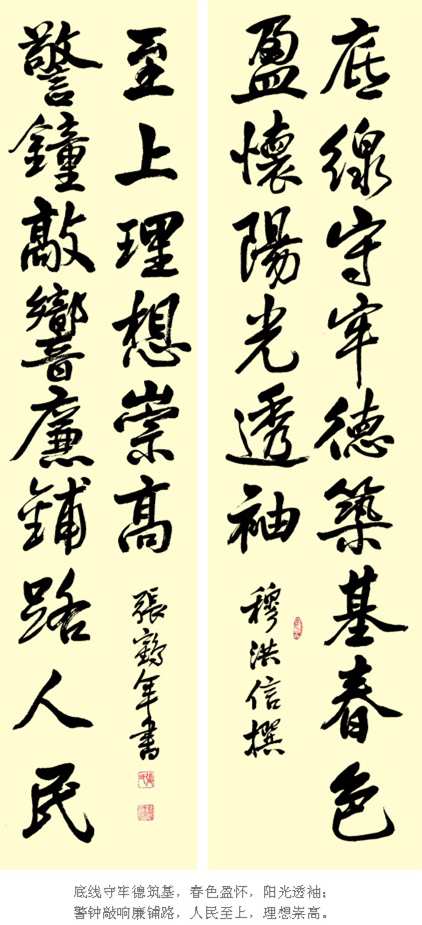 底線守牢德築基春色
盈懷陽光透袖
穆洪信撰
警鐘敲響廉鋪路人民
至上理想崇高
張鶴年書
底线守牢德筑基，春色盈怀，阳光透袖；
警钟敲响廉铺路，人民至上，理想崇高。